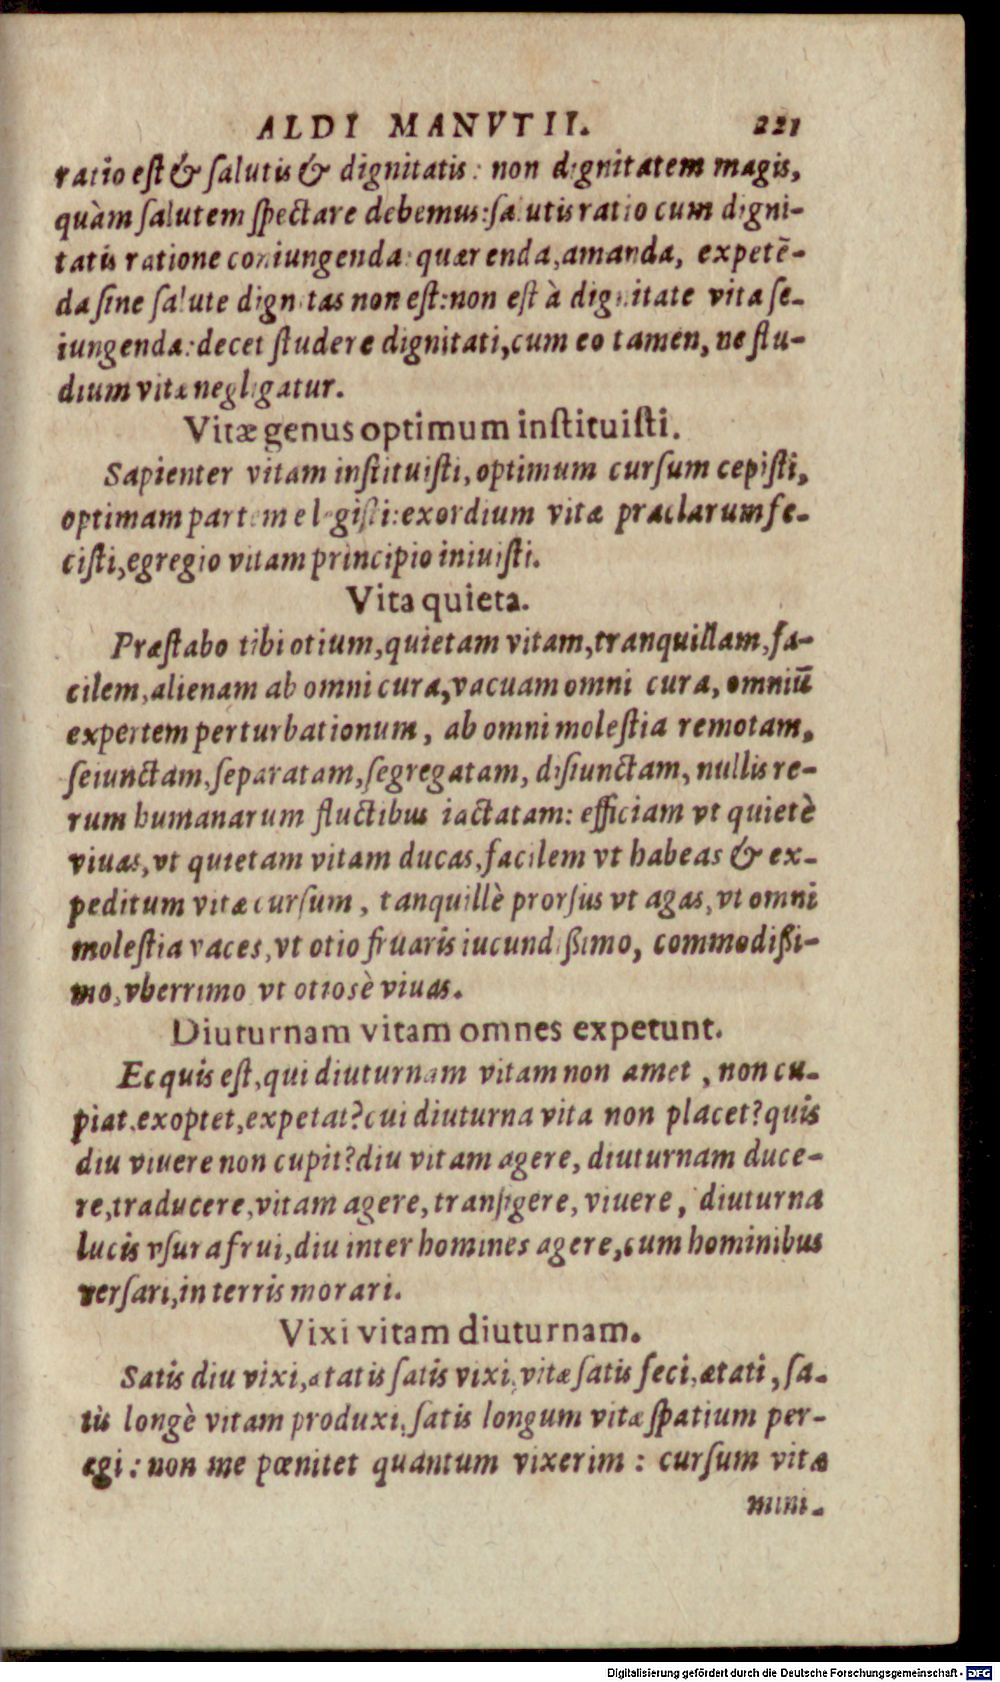 ALDI MANVTII. 221
ratio est & salutis & dignitatis: non dignitatem magis,
quàm salutem spectare debemus: salutis ratio cum digni-
tatis ratione coniungenda: quærenda, amanda, expetē-
da sine salute dignitas non est: non est à dignitate vita se-
iungenda: decet studere dignitati, cum eo tamen, ne stu-
dium vitæ negligatur.
Vitæ genus optimum instituisti.
Sapienter vitam instituisti, optimum cursum cepisti,
optimam partem elegisti: exordium vitæ præclarum fe-
cisti, egregio vitam principio iniuisti.
Vita quieta.
Præstabo tibi otium, quietam vitam, tranquillam, fa-
cilem, alienam ab omni cura, vacuam omni cura, omniū
expertem perturbationum, ab omni molestia remotam,
seiunctam, separatam, segregatam, disiunctam, nullis re-
rum humanarum fluctibus iactatam: efficiam vt quietè
viuas, vt quietam vitam ducas, facilem vt habeas & ex-
peditum vitæ cursum, tanquillè prorsus vt agas, vt omni
molestia vaces, vt otio fruaris iucundissimo, commodissi-
mo, vberrimo vt otiosè viuas.
Diuturnam vitam omnes expetunt.
Ecquis est, qui diuturnam vitam non amet, non cu-
piat, exoptet, expetat? cui diuturna vita non placet? quis
diu viuere non cupit? diu vitam agere, diuturnam duce-
re, traducere, vitam agere, transigere, viuere, diuturna
lucis vsura frui, diu inter homines agere, cum hominibus
versari, in terris morari.
Vixi vitam diuturnam.
Satis diu vixi, ætatis satis vixi, vitæ satis feci, ætati, sa-
tis longè vitam produxi, satis longum vitæ spatium per-
egi: non me pœnitet quantum vixerim: cursum vitæ
mini-
Digitalisierung gefördert durch die Deutsche Forschungsgemeinschaft - DFG